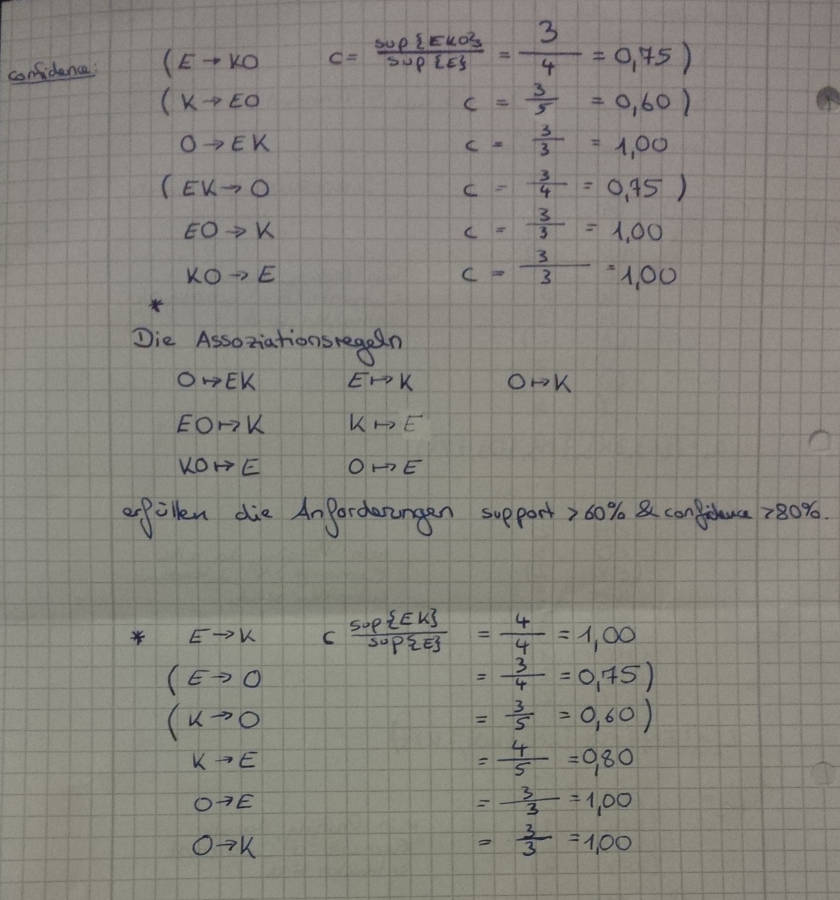 confidence: (E → KO c = sup{EKO}/sup{E} = 3/4 = 0,75)
(K → EO c = 3/5 = 0,60)
O → EK c = 3/3 = 1,00
(EK → O c = 3/4 = 0,75)
EO → K c = 3/3 = 1,00
KO → E c = 3/3 = 1,00
*
Die Assoziationsregeln
O ↦ EK E ↦ K O ↦ K
EO ↦ K K ↦ E
KO ↦ E O ↦ E
erfüllen die Anforderungen support > 60% & confidence > 80%.
* E → K c sup{EK}/sup{E} = 4/4 = 1,00
(E → O = 3/4 = 0,75)
(K → O = 3/5 = 0,60)
K → E = 4/5 = 0,80
O → E = 3/3 = 1,00
O → K = 3/3 = 1,00